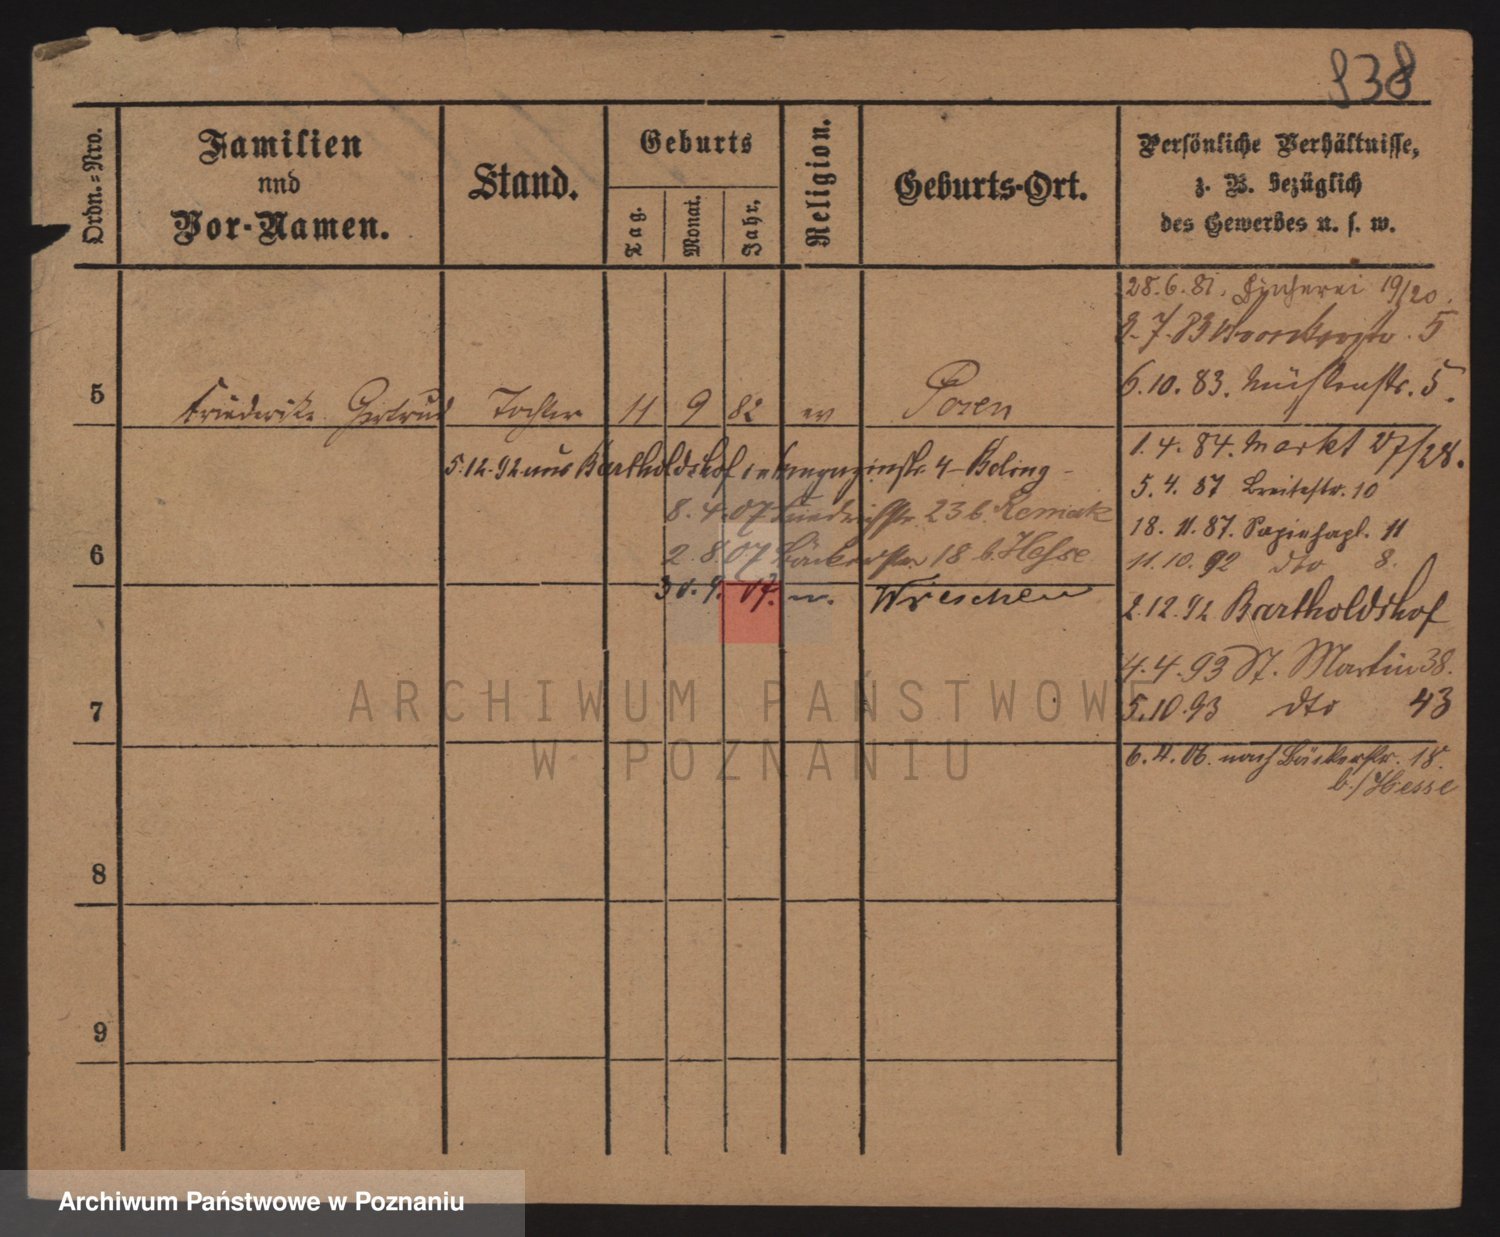 938
Ordn.-Nro.
Familien
und
Vor-Namen.
Stand.
Geburts
Tag.
Monat.
Jahr.
Religion.
Geburts-Ort.
Persönliche Verhältnisse,
z. B. bezüglich
des Gewerbes u. s. w.
28.6.81. 19/20.
2.7.83 5
6.10.83. Mühlenstr. 5.
5 Friederike Gertrud Tochter 11 9 82 ev Posen
1.4.84. Markt 27/28.
5.12.92 aus Bartholdshof 4
5.4.87 Breitestr. 10
8.4.07 Friedrichstr. 23 b.
18.11.87. Sapiehapl. 11
6
2.8.07 Bäckerstr. 18 b. Hesse
11.10.92 dto 8.
30.9.07. n. Wreschen
2.12.92 Bartholdshof
4.4.93 St. Martin 38.
7
5.10.93 dto 43
6.4.06. nach Bäckerstr. 18.
b./Hesse
8
9
ARCHIWUM PAŃSTWOWE
W POZNANIU
Archiwum Państwowe w Poznaniu